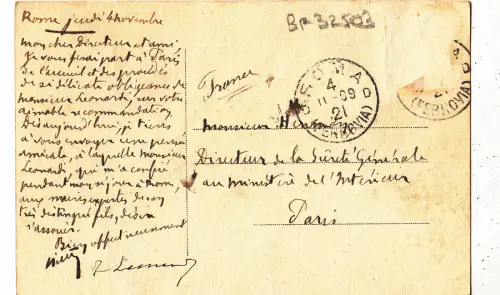 Rome jeudi 4 novembre
Mon cher Directeur et ami,
Je vous ferai part à Paris
de l'accueil et des procédés
de si délicate obligeance de
Monsieur Leonardi, sur votre
aimable recommandation.
Dès aujourd'hui, je tiens
à vous envoyer une pensée
amicale, à laquelle Monsieur
Leonardi, qui m'a confié
pendant mon séjour à Rome,
aux mains expertes de son
très distingué fils,
s'associer.
Bien affectueusement
BP 32503
(France)
ROMA
4
11-09
21
(FERROVIA)
Monsieur Henry
Directeur de la Sûreté Générale
au ministère de l'Intérieur
Paris